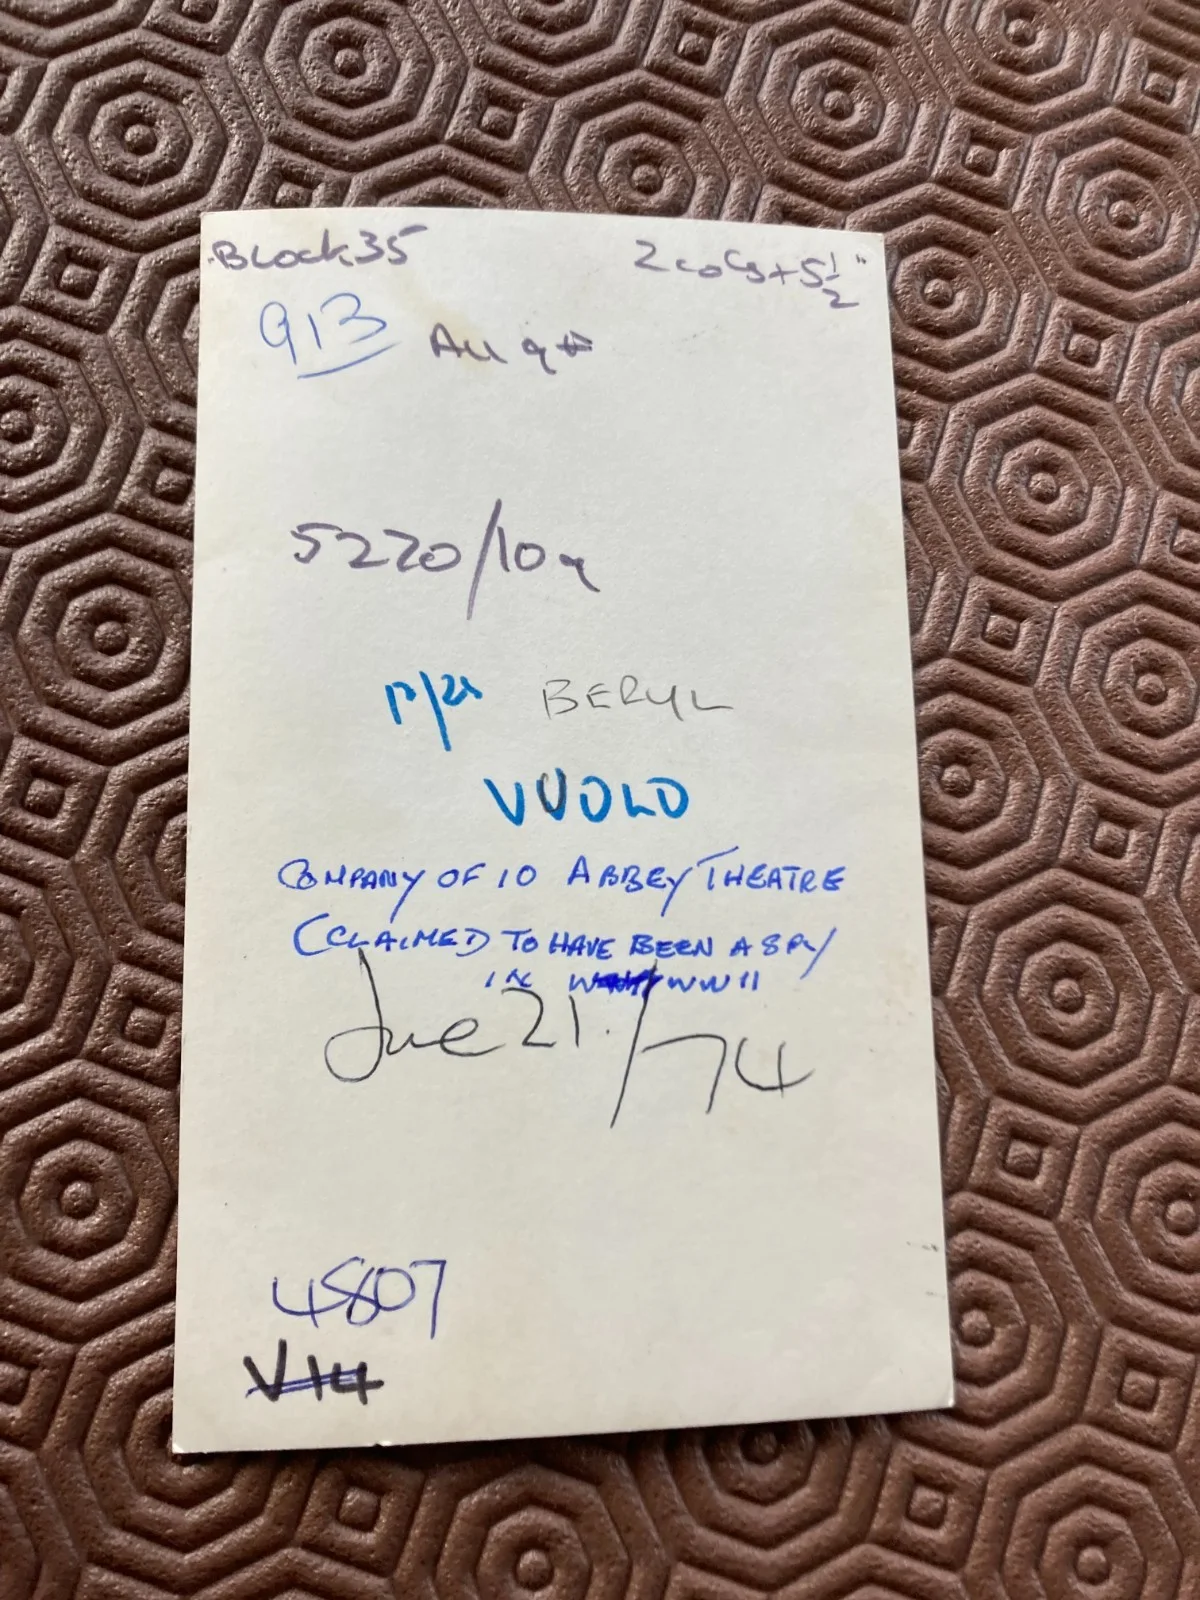 Block 35
2 cocs + 5 1/2"
913
All 9
5220/10a
BERYL
VUOLO
COMPANY OF 10 ABBEY THEATRE
(CLAIMED TO HAVE BEEN A SPY
IN WWII
June 21./74
4807
V14